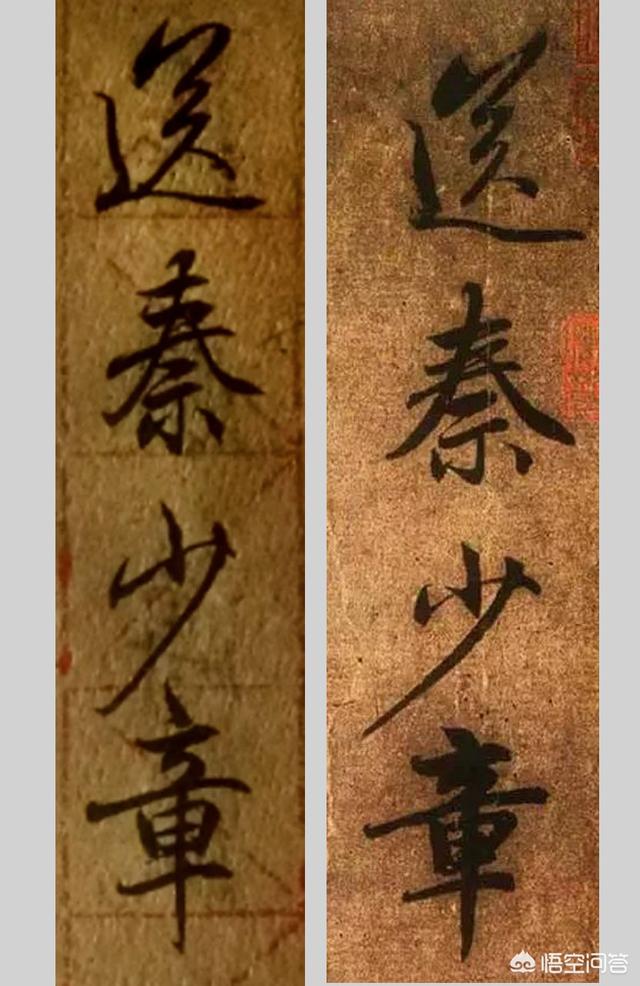 送秦少章
送秦少章
悟空问答